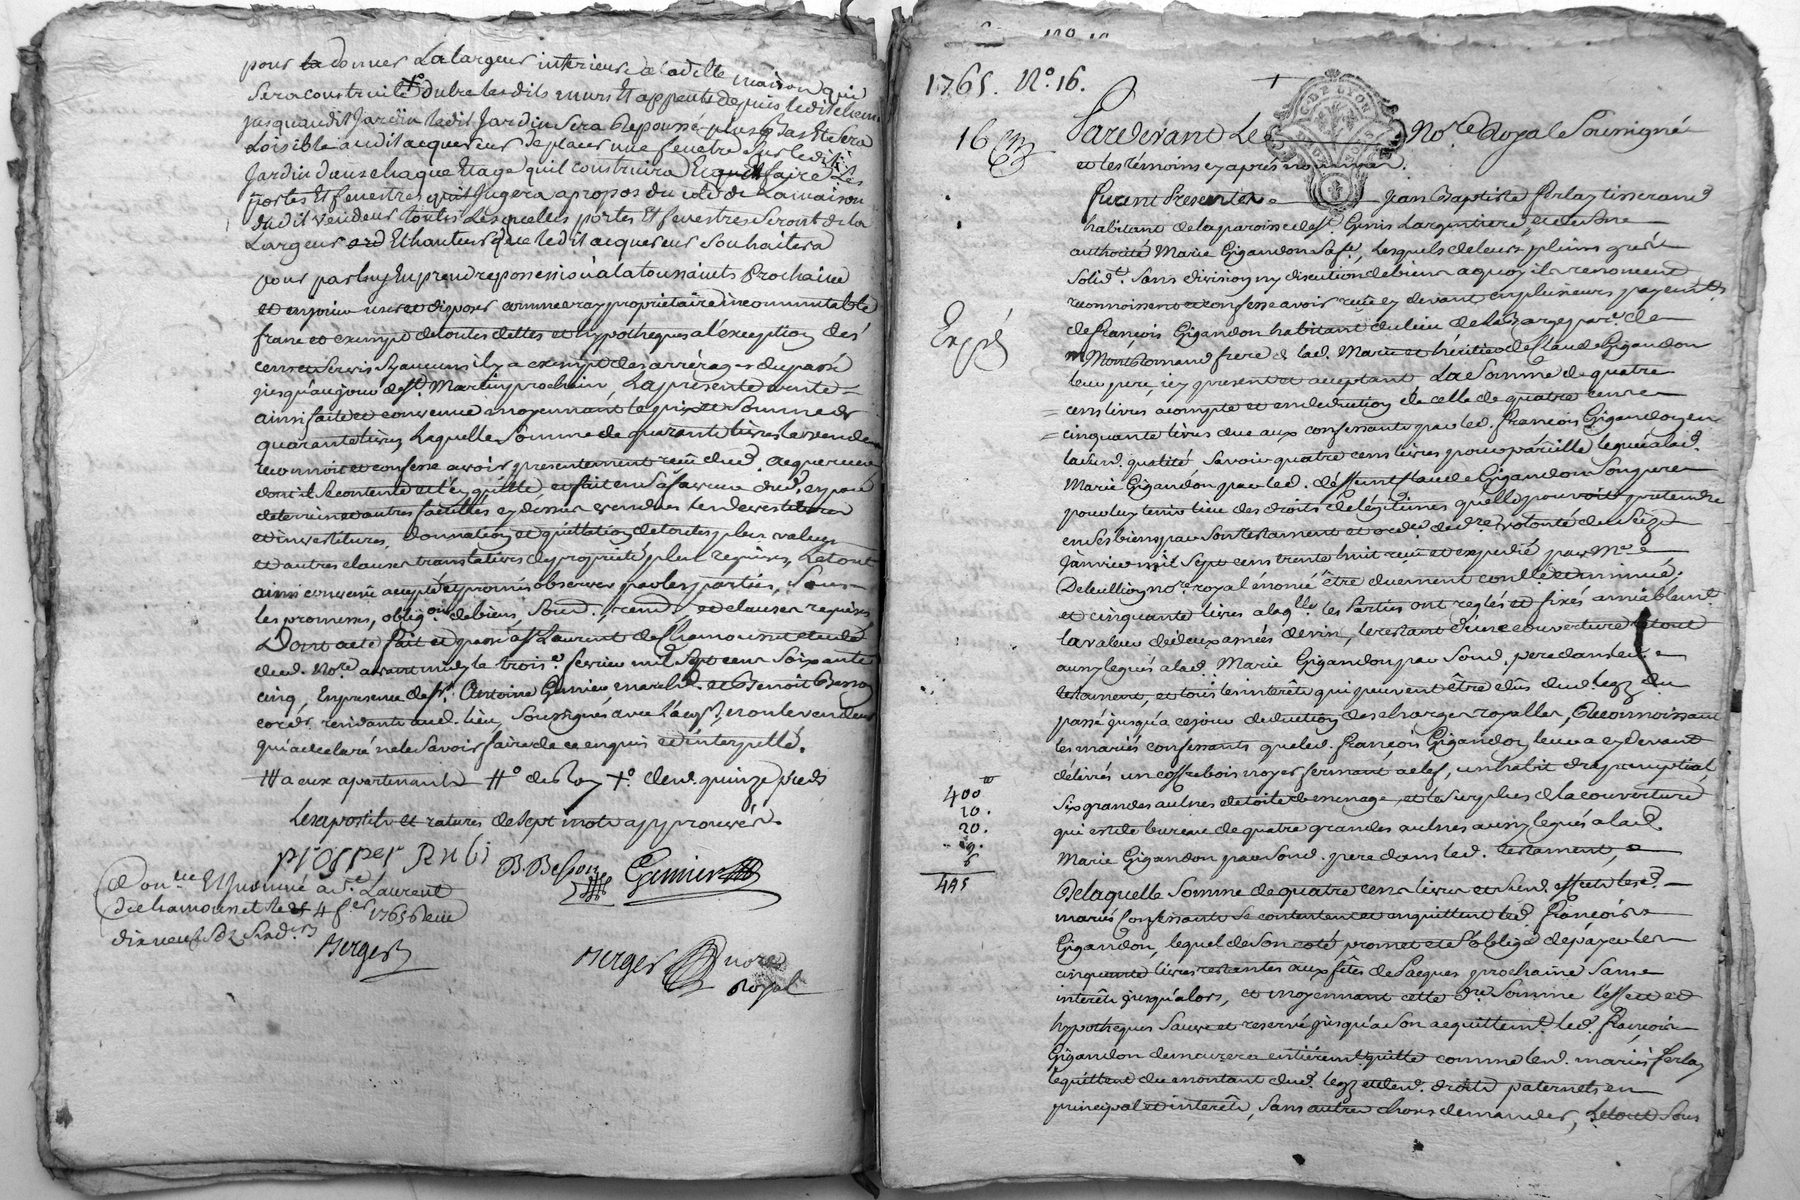 pour la donner La largeur interieure de ladette maison qui
sera construitte outre lesdits murs Et appents depuis ledit chemin
jusquaudit Jardin ledit Jardin sera Repoussé plus bas Et sera
Loisible audit acquereur de placer une fenetre sur ledit
Jardin dans chaque Etage quil construira Et faire Les
portes Et fenestres quil Jugera apropos du coté de La maison
dudit vendeur toutes Lesquelles portes Et fenestres seront de la
Largeur Et hauteur que ledit acquereur souhaitera
pour par luy En prendre possession a la toussaints Prochaine
et en jouir user et disposer comme vray proprietaire incommutable
franc et exempt de toutes dettes et hypotheques a l'exception des
cens et servis Syanciens il y a exempt des arrérages du passé
jusqu'au jour de St. Martin prochain, La presente vente
ainsi faite et convenue moyennant le prix et Somme de
quarante livres, Laquelle Somme de quarante livres le vendeur
reconnoit et confesse avoir presentement reçu dud. acquereur
dont il se contente et l'en quitte, et fait en sa faveur
de terrein et autres facultés cy dessus vendues
et investitures, donnation et quittation de toutes plus values
et autres clauses translatives de propriété plus requises, Le tout
ainsi convenu accepté et promis observer par les parties, Sous
les promesses, oblig.on de biens, Soum. renon. et clauses requises
Dont acte fait et passé a St Laurent de Chamousset etude
dud. No.re avant midy le trois.e fevrier mil Sept cens Soixante
cinq, En presence de Sr. Antoine Grenier march.d et Benoit Besson
cord.r residants aud. lieu, Soussignés avec l'acq.r et non le vendeur
qui a declaré ne le Savoir faire de ce enquis et interpellé.
# a eux apartenants #o de Roy +o de quinze pieds
Les apostils et ratures de sept mots approuvés.
prosper Rubi
B. Besson Grenier
Con.lé Et Insinué a St. Laurent
de chamousset le 4 f.er 1765 Reçu
dix neuf Sols Six d.rs
Berger
Berger nore
Royal
1765. No. 16.
16
GEN. DE LYON
Pardevant Le No.re Royal Soussigné
et les témoins cy après nommés.
furent Presents Jean Baptiste ferlay tisserand
habitant de la paroisse de St. Genis Largentiere, et de Son
authorité Marie Gigandon Sa fe., Lesquels de leurs pleins grés
Solid.t Sans division ny discution de biens a quoy ils renoncent
reconnoissent et confesse avoir reçu cy devant en plusieurs payements
de françois Gigandon habitant du lieu de par.e de
Montromand frere de lad. Marie et héritier de Claude Gigandon
leur pere, icy present et acceptant, La Somme de quatre
cens livres acompte et en deduction de celle de quatre cens
cinquante livres due aux confessants par led. françois Gigandon en
lad. qualité, Savoir quatre cens livres pour pareille leguée a lad.
Marie Gigandon par led. deffunt Claude Gigandon Son pere
pour luy tenir lieu des droits de légitimes qu'elle pouvoit pretendre
en ses biens par Son testament et ord.re de d.re volonté du Seize
Janvier mil Sept cens trente huit reçu et expedié par Me.
Deleullion no.re royal énoncé être duement controllé et insinué;
et cinquante livres a laq.lle les Parties ont reglés et fixés amiablem.t
la valeur de deux anées de vin, le restant d'une couverture le tout
aussy legués a lad. Marie Gigandon par Sond. pere dans led.
testament, et tous les interêts qui peuvent être dûs dud. legs du
passé jusqu'a ce jour deduction des charges royalles, Reconnoissant
les mariés confessants que led. françois Gigandon leur a cy devant
délivrés un coffre bois noyer fermant a clef, un habit drap nuptial,
Six grandes aulnes de toile de menage, et le Surplus de la couverture
qui est de bureau de quatre grandes aulnes aussy legués a lad.
Marie Gigandon par Sond. pere dans led. testament,
De laquelle Somme de quatre cens livres et Susd. effects lesd.
mariés Confessants Se contentent et en quittent led. François
Gigandon, lequel de Son coté promet et S'oblige de payer les
cinquante livres restantes aux fêtes de Pacques prochaine Sans
interêts jusqu'alors, et moyennant cette d.re Somme
hypotheques Sauve et reservé jusqu'a Son acquittem.t led. françois
Gigandon demeurera entièrem.t quitte comme lesd. mariés ferlay
le quittent du montant dud. legs et desd. droits paternels en
principal et interêts, Sans autre chose demander, Le tout Sous
Exp.é
400
10.
20.
9.
6
445